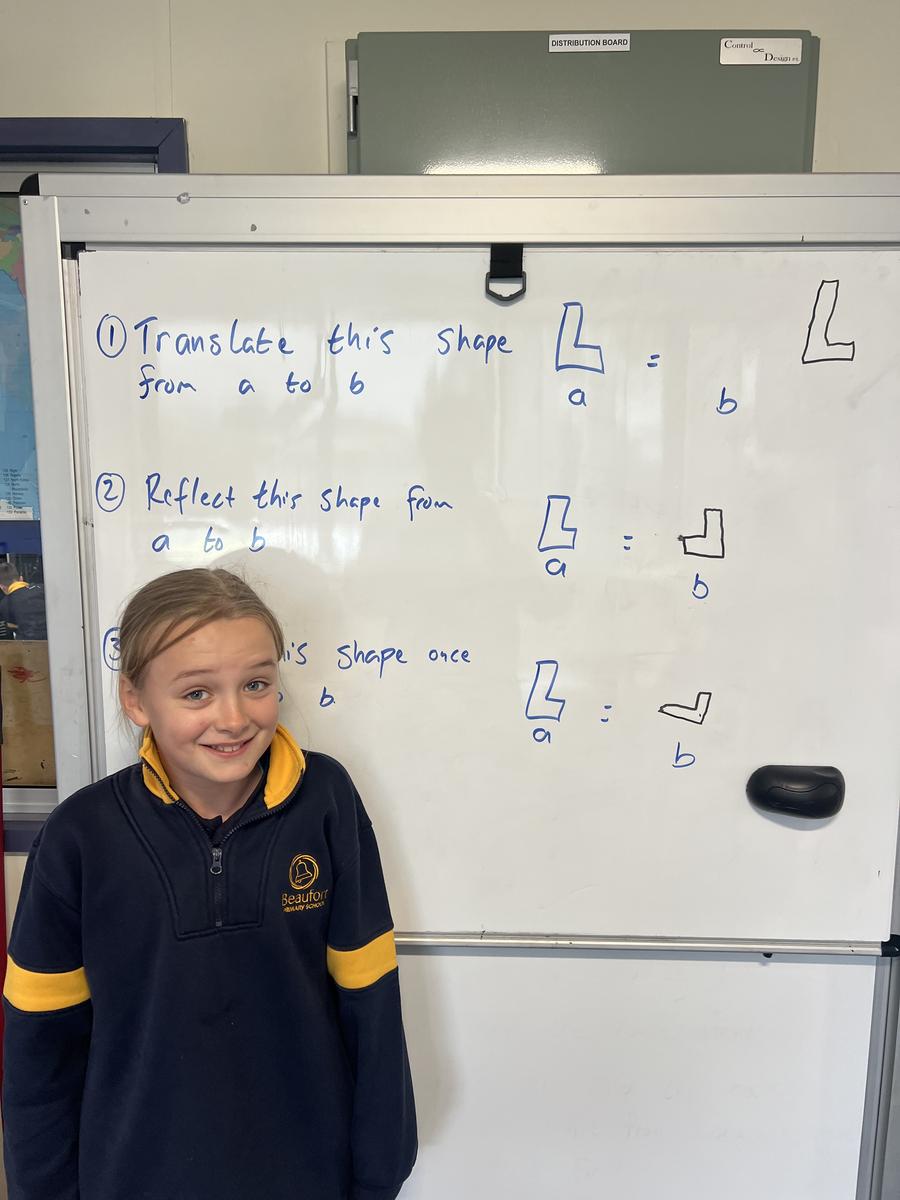 DISTRIBUTION BOARD
Control
Design P/L
① Translate this shape
from a to b
a = b
② Reflect this shape from
a to b
a = b
③ his shape once
b
a = b
Beaufort
PRIMARY SCHOOL